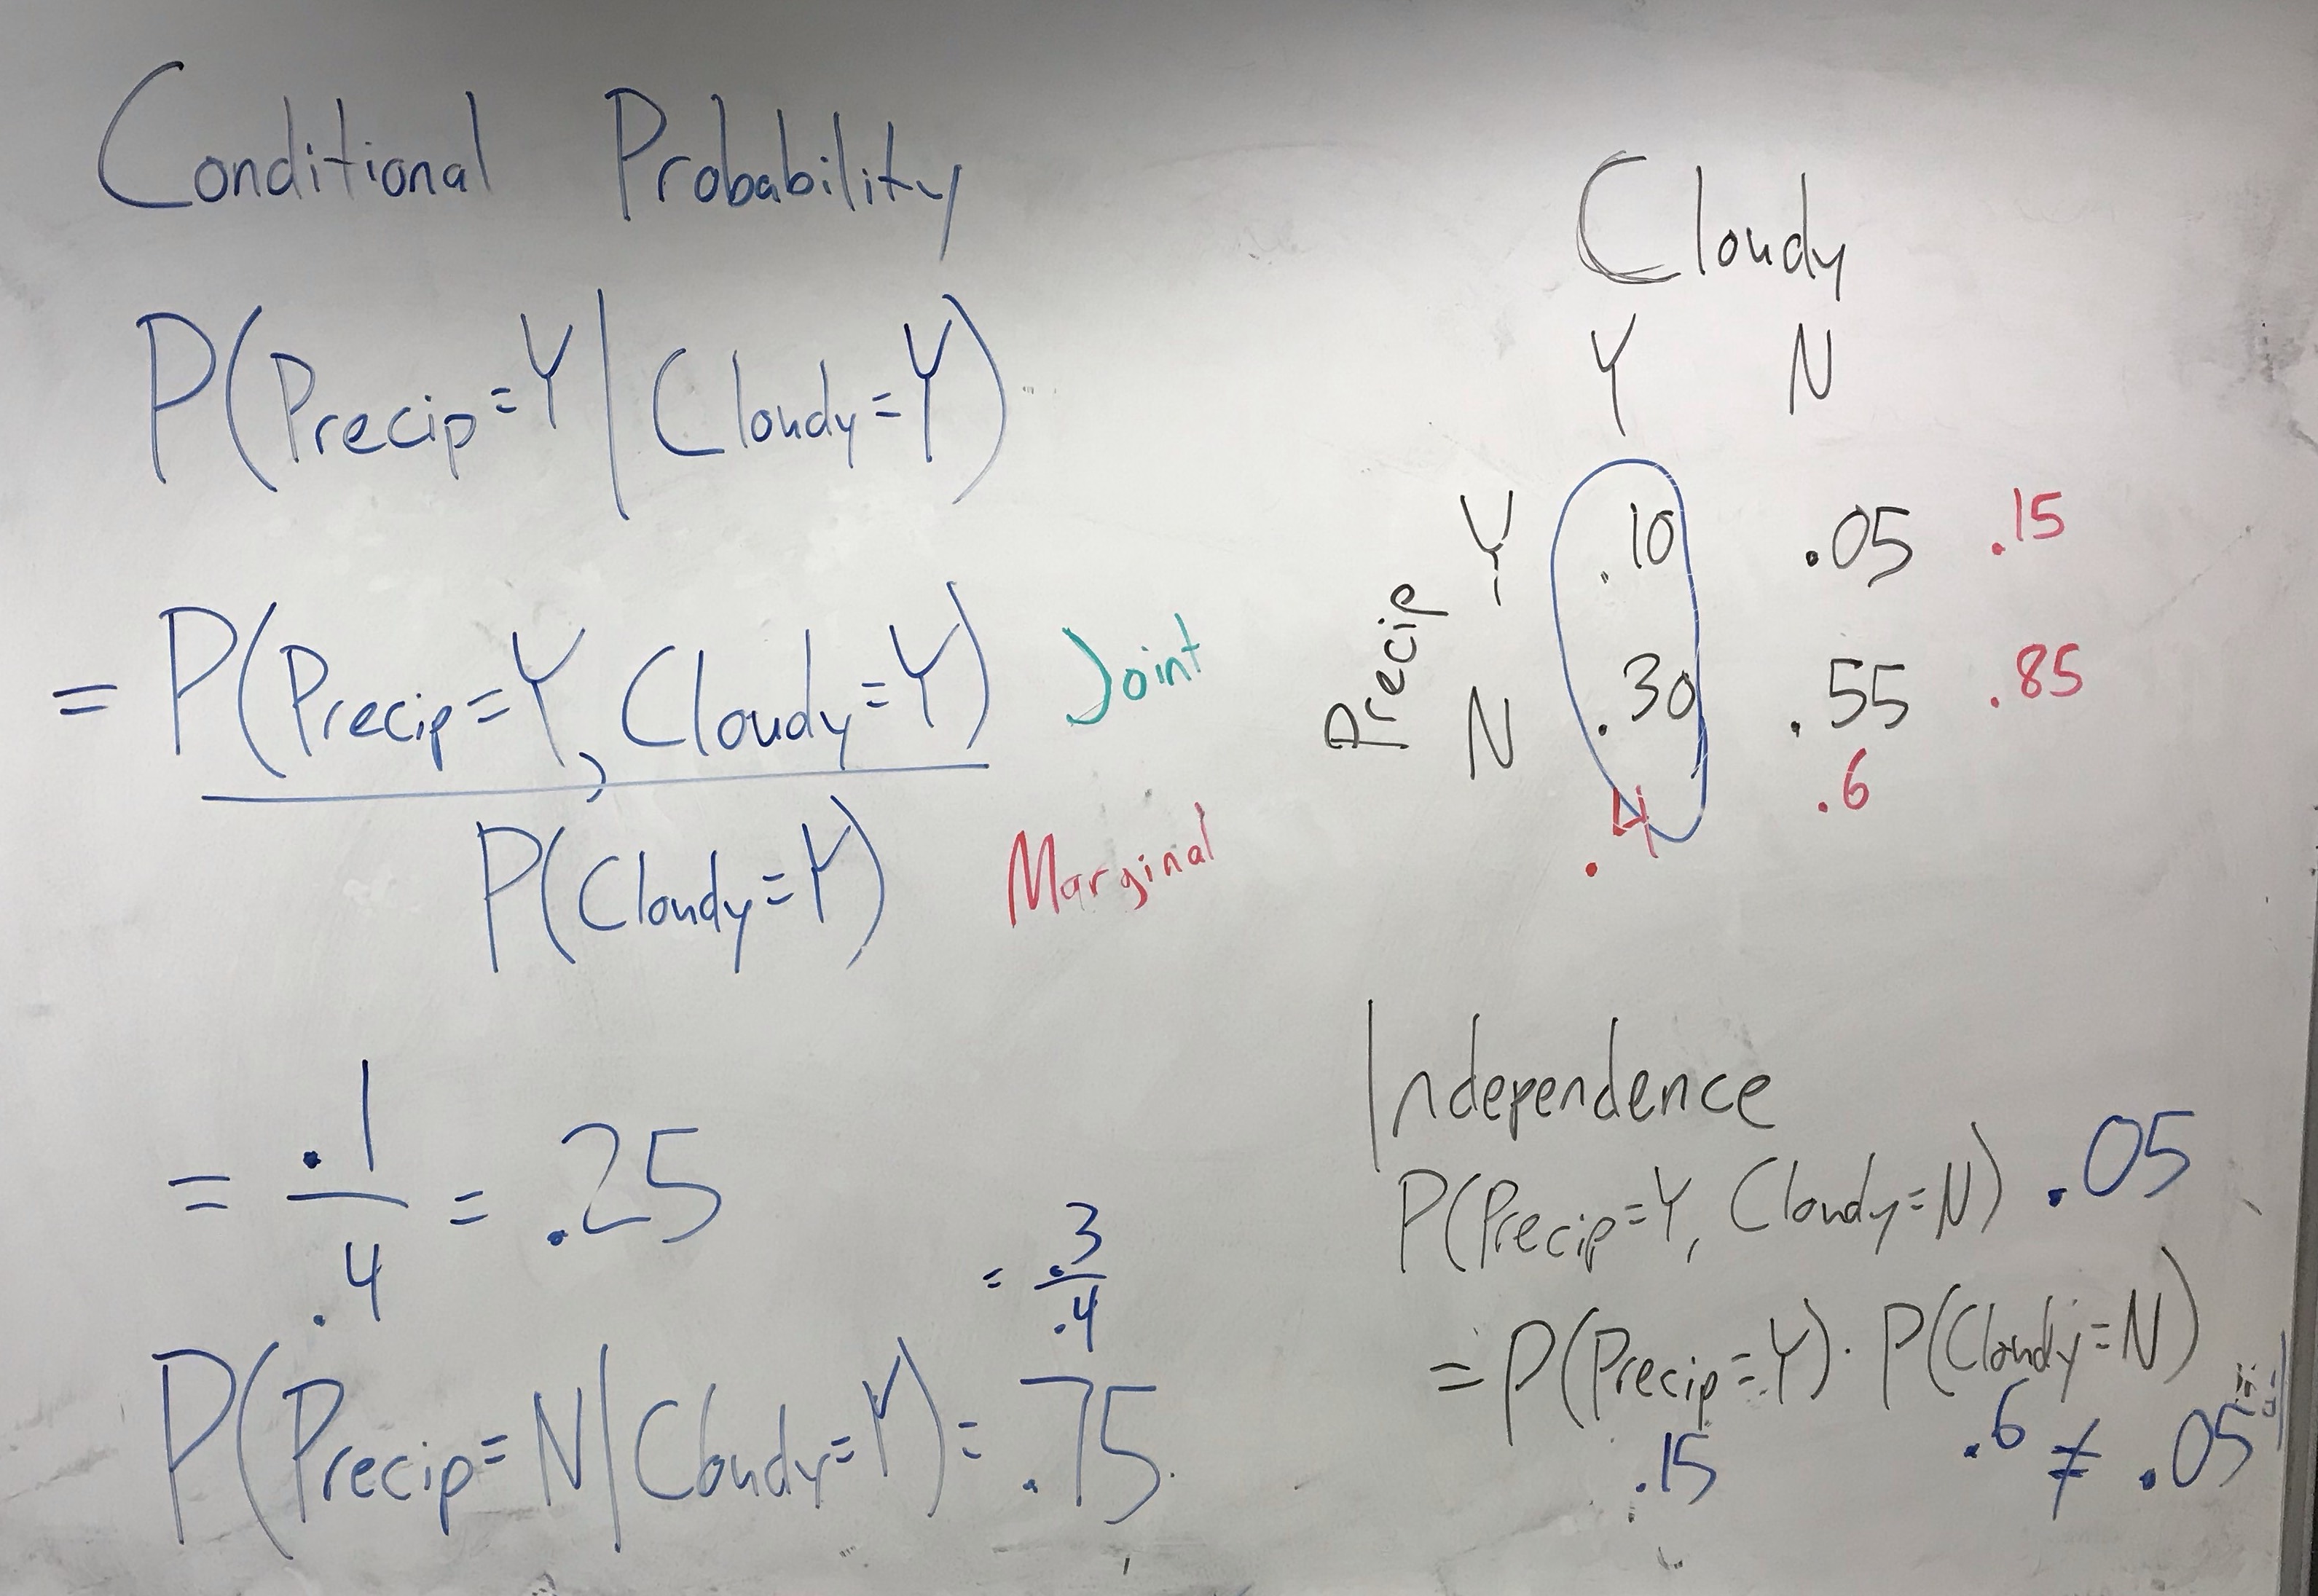 Conditional Probability
P(Precip=Y|Cloudy=Y)
= P(Precip=Y, Cloudy=Y) Joint
P(Cloudy=Y) Marginal
= .1
.4
= .25
= .3
.4
P(Precip=N|Cloudy=Y)= .75
Cloudy
Y N
Precip
Y .10 .05 .15
N .30 .55 .85
.4 .6
Independence
P(Precip=Y, Cloudy=N) .05
=P(Precip=Y)·P(Cloudy=N)
.15 .6 ≠ .05